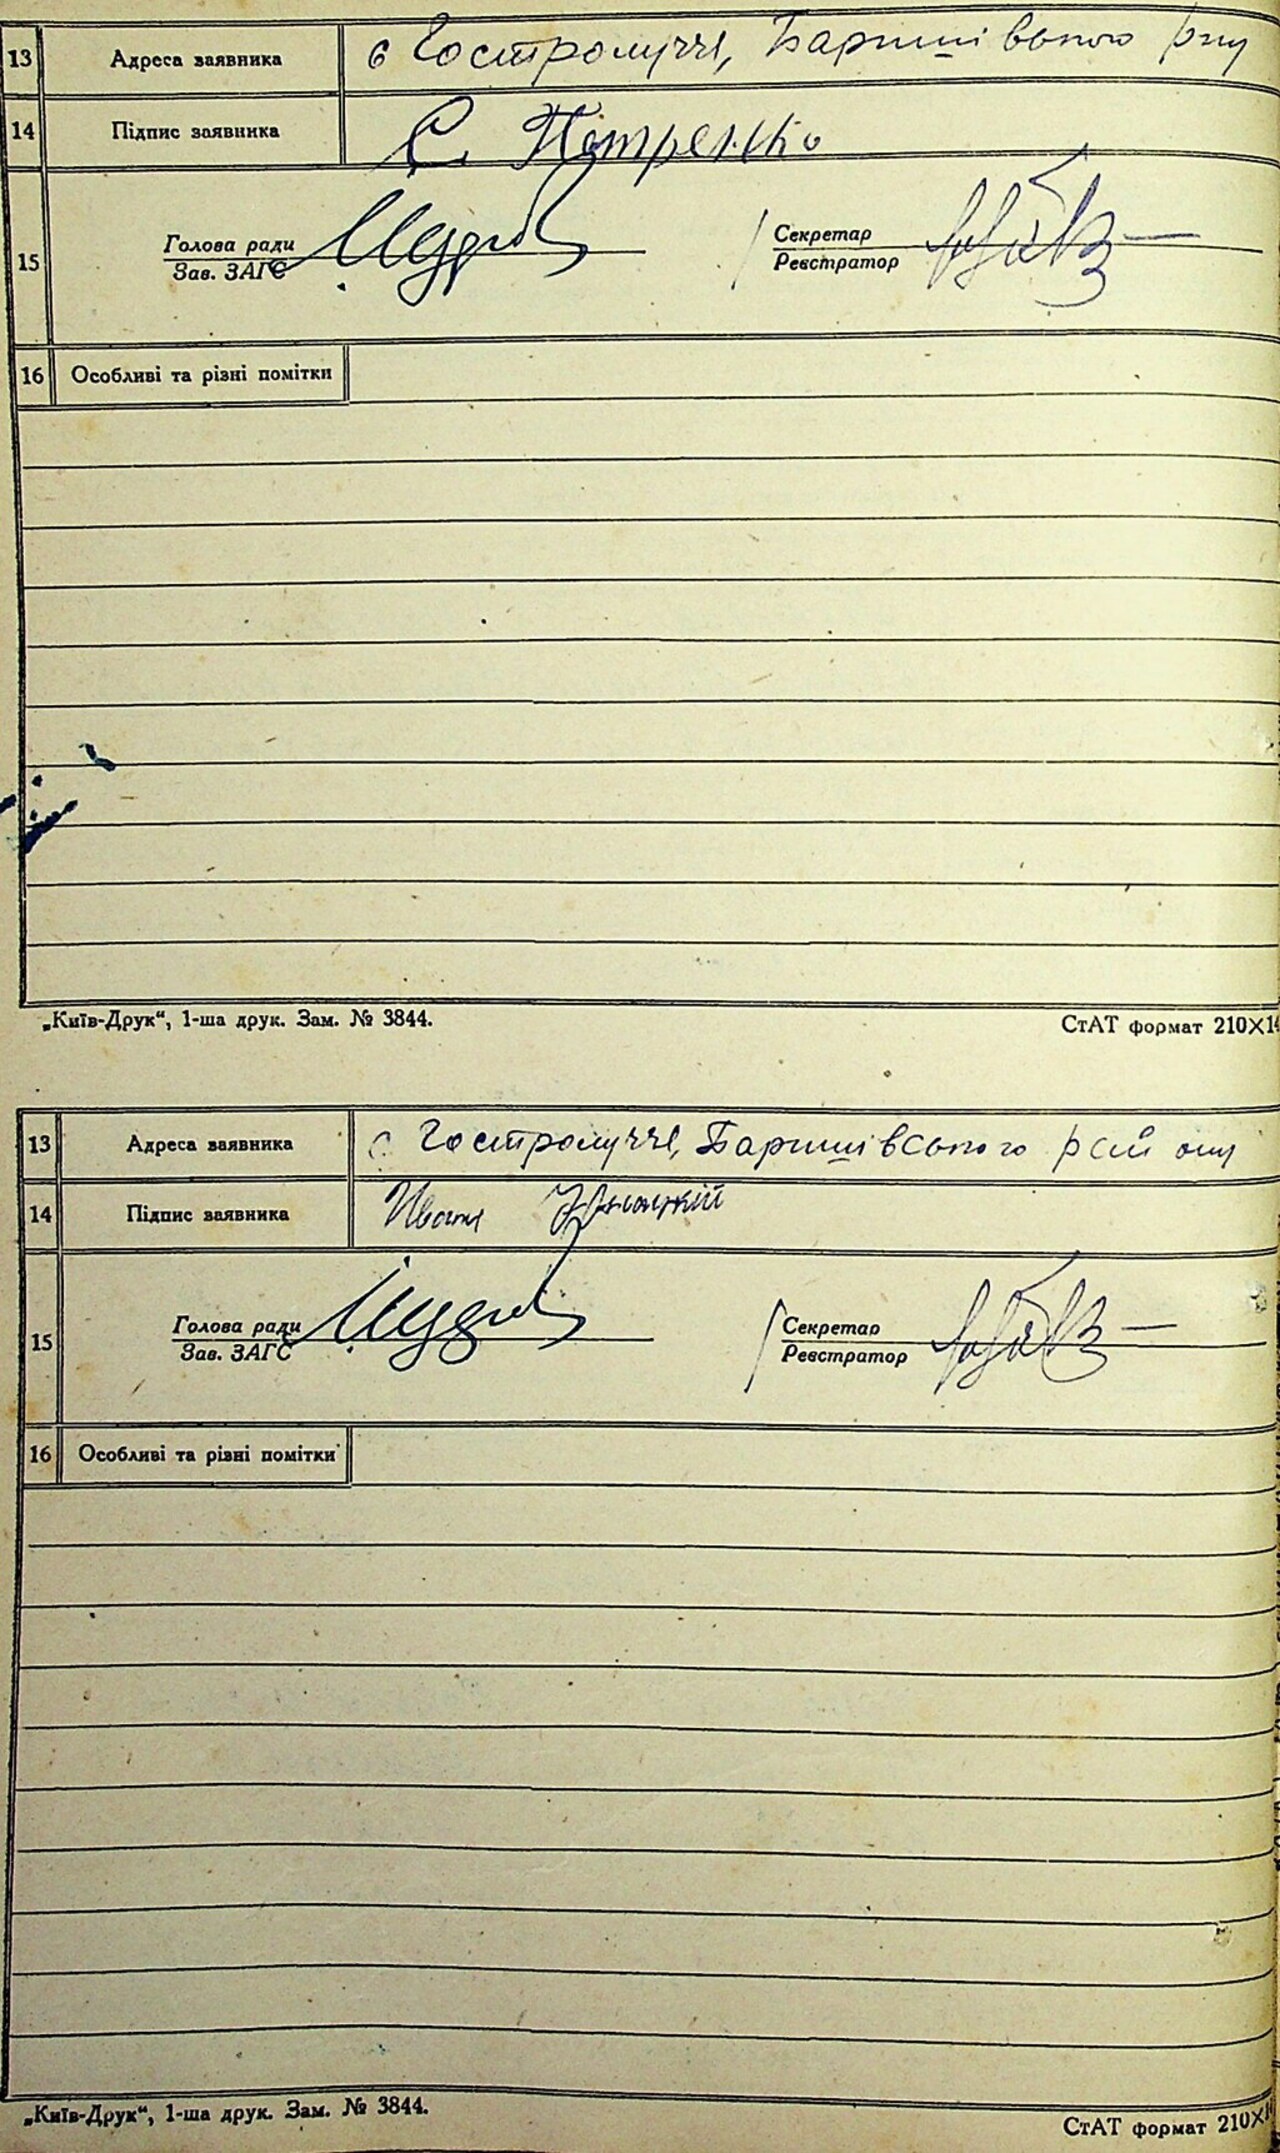 13 Адреса заявника с Гостролуччя, Баришівського р-ну
14 Підпис заявника С. Петренко
15 Голова ради
Зав. ЗАГС
Секретар
Реєстратор
16 Особливі та різні помітки
„Київ-Друк“, 1-ша друк. Зам. № 3844.
СтАТ формат 210×14
13 Адреса заявника с Гостролуччя, Баришівського району
14 Підпис заявника
15 Голова ради
Зав. ЗАГС
Секретар
Реєстратор
16 Особливі та різні помітки
„Київ-Друк“, 1-ша друк. Зам. № 3844.
СтАТ формат 210×1